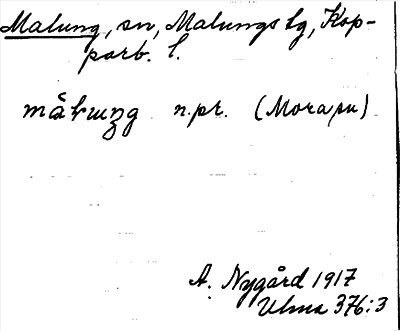 Malung, sn, Malungs tg, Kop-
parb. l.
n.pr. (Mora sn)
A. Nygård 1917
Ulma 376:3